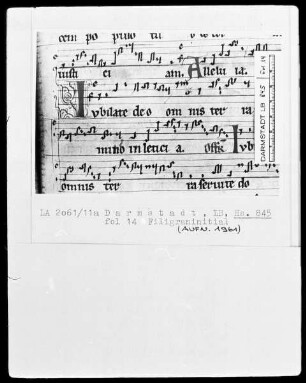 cem po pulo tu
iusti ci am. Alleluia.
Iubilate deo omnis terra
mino in leticia. Offic Iub
omnis terra seruite do
DARMSTADT LB 845 CM IN
LA 2061/11a Darmstadt, LB, Hs. 845
fol 14 Filigraninitial
(AUFN. 1961)